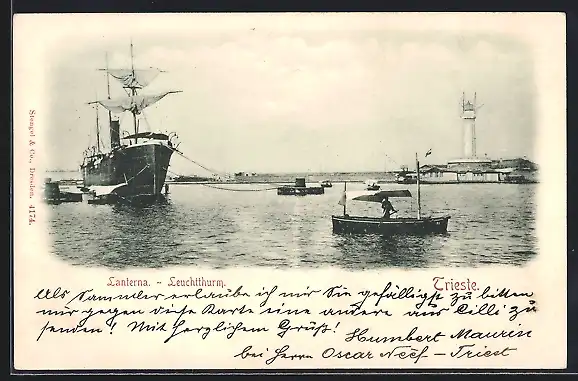 Stengel & Co., Dresden. 4174.
Lanterna. - Leuchtthurm.
Trieste.
Als Sammler erlaube ich mir Sie gefälligst zu bitten
mir gegen diese Karte eine andere aus Cilli zu
senden! Mit herzlichem Gruß! Humbert Maurin
bei Herrn Oscar Neëf - Triest